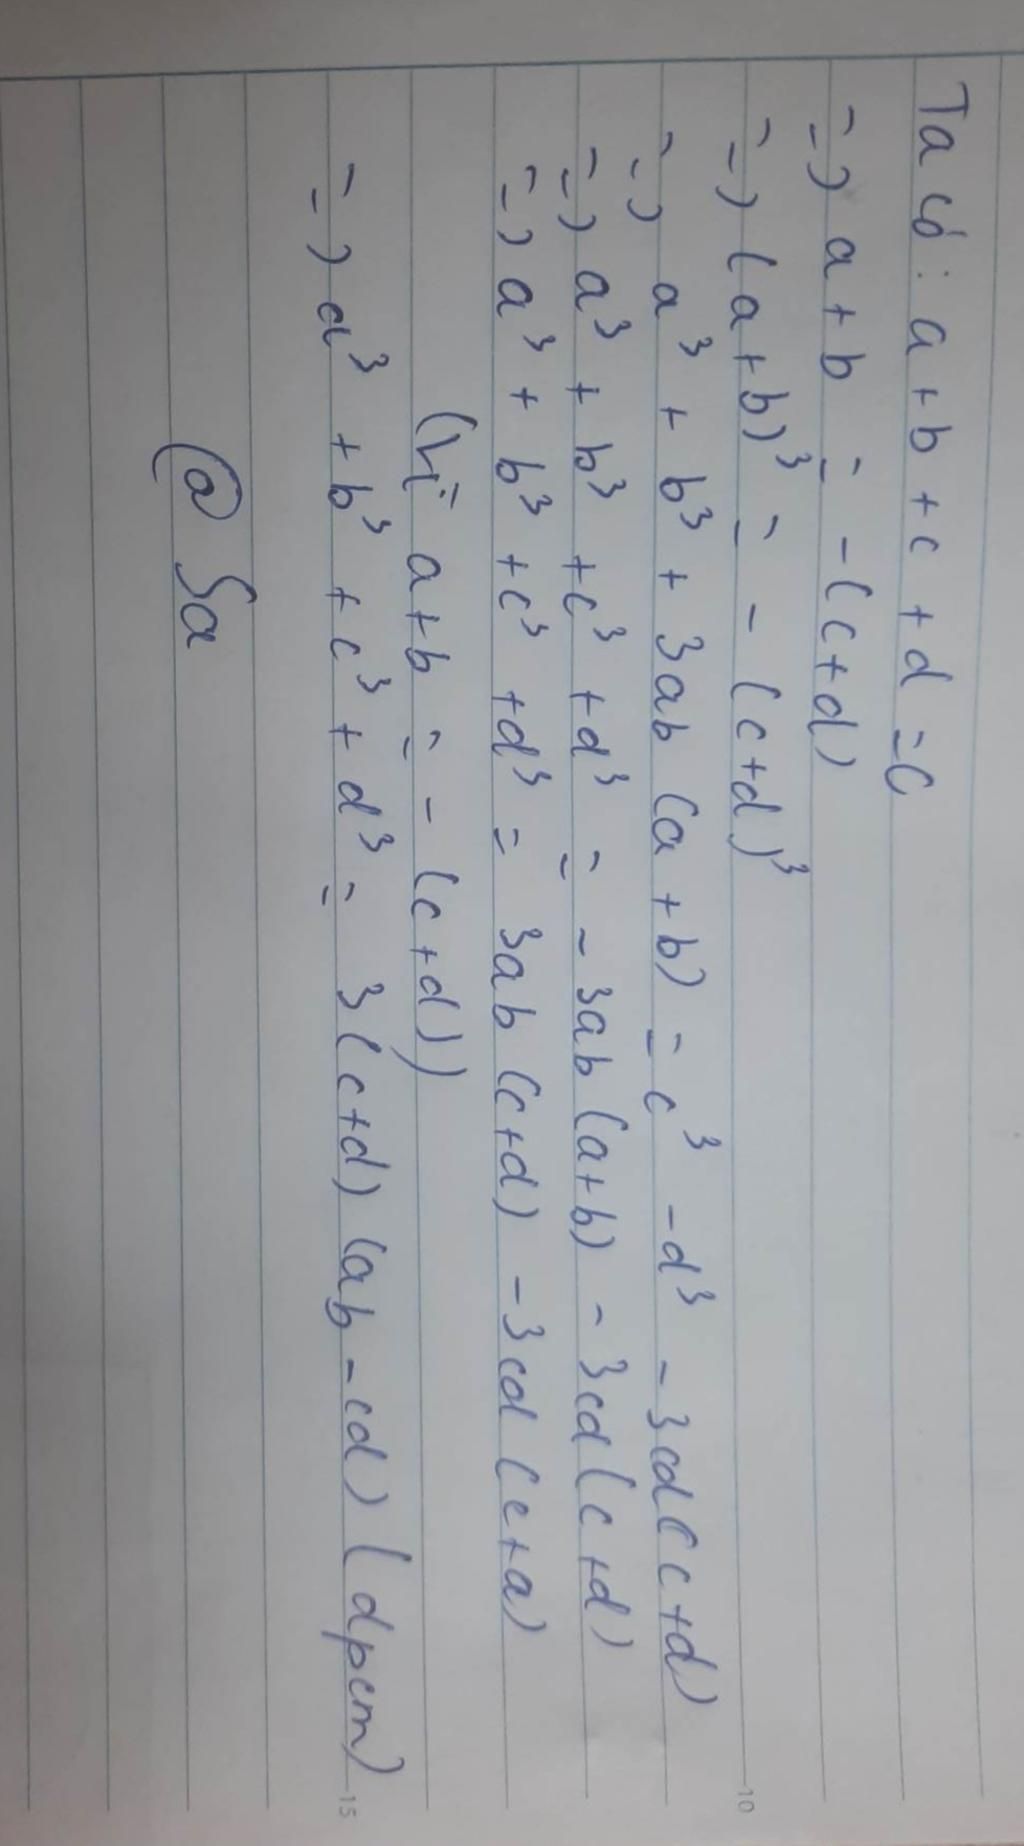 Ta có: a + b + c + d = 0
=) a + b = -(c+d)
=) (a+b)³ = - (c+d)³
=) a³ + b³ + 3ab (a + b) = c³ - d³ - 3cd(c+d)
=) a³ + b³ + c³ + d³ = - 3ab (a+b) - 3cd (c+d)
=) a³ + b³ + c³ + d³ = 3ab (c+d) - 3cd (c+d)
(Vì a+b = - (c+d))
=) a³ + b³ + c³ + d³ = 3(c+d) (ab - cd) (đpcm)
@ Sa
10
15